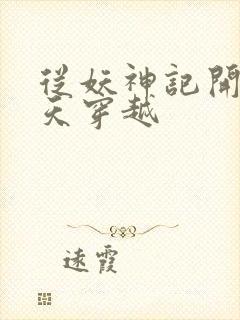 從妖神記開
天穿越
遠霞